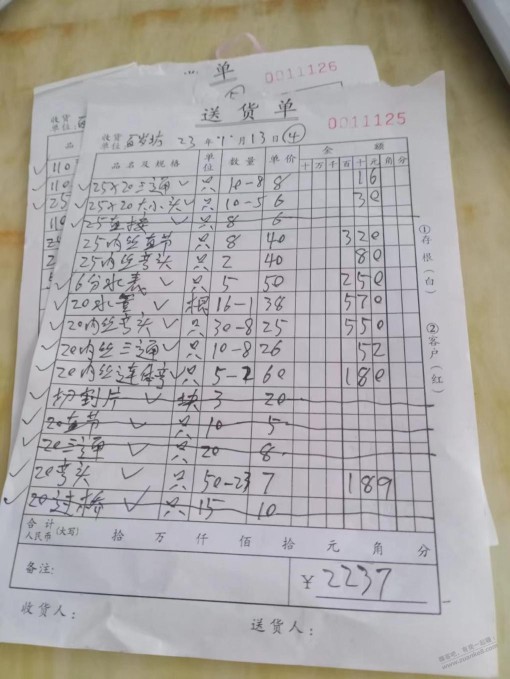 单
0011126
送货单
0011125
收货单位 23年11月13日 ④
品名及规格 单位 数量 单价 金额
十万千百十元角分
25×20三通 ✓ 只 10-8 8 16
25×20大小头 ✓ 只 10-5 6 30
25直接 只 8 6
25内丝直节 只 8 40 320
25内丝弯头 只 2 40 80
6分水表 ✓ 只 5 50 250
20水管 ✓ 根 16-1 38 570
20内丝弯头 ✓ 只 30-8 25 550
20内丝三通 ✓ 只 10-8 26 52
20内丝连体弯 ✓ 只 5-2 60 180
切割片 ✓ 块 3 20
20直节 ✓ 只 10 5
20三通 ✓ 只 20 8
20弯头 ✓ 只 50-23 7 189
20过桥 ✓ 只 15 10
合计人民币(大写) 拾 万 仟 佰 拾 元 角 分
备注: ¥2237
收货人: 送货人:
①存根(白)
②客户(红)